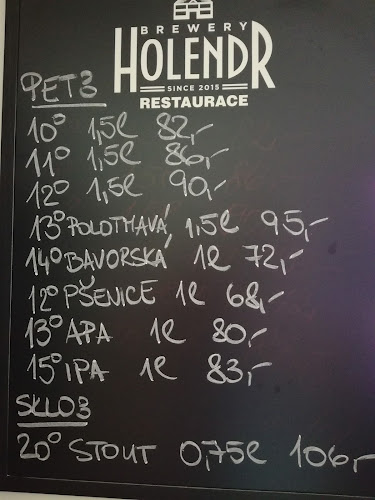 BREWERY
HOLENDR
SINCE 2015
RESTAURACE
PET3
10° 1,5l 82,-
11° 1,5l 86,-
12° 1,5l 90,-
13° POLOTMAVÁ 1,5l 95,-
14° BAVORSKÁ 1l 72,-
12° PŠENICE 1l 68,-
13° APA 1l 80,-
15° IPA 1l 83,-
SKLO3
20° STOUT 0,75l 106,-